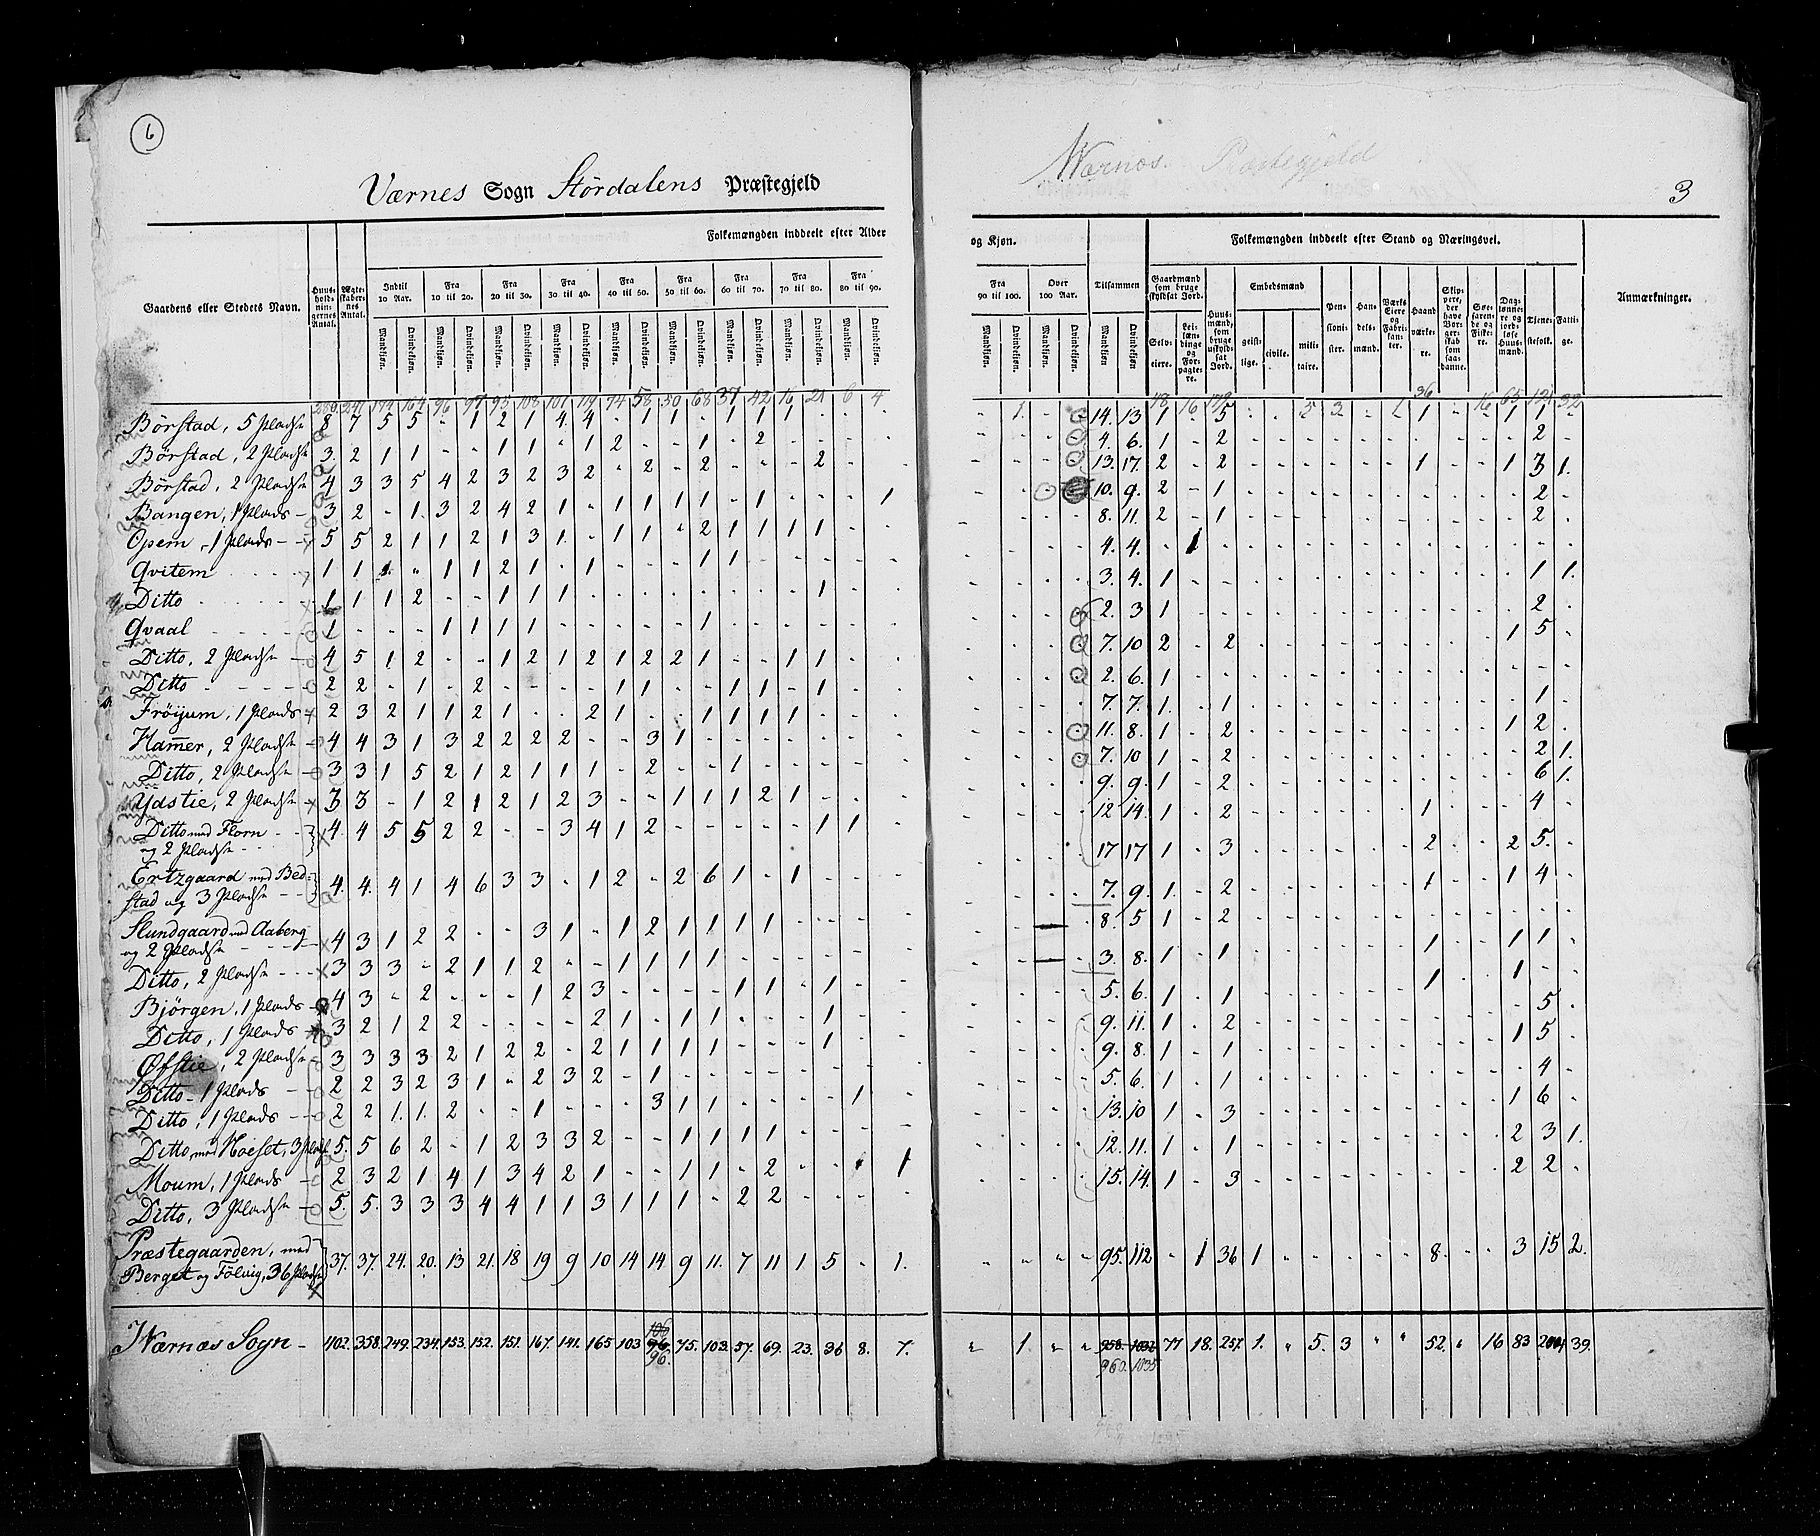 6
Værnes Sogn Størdalens Præstegjeld
Værnæs Præstegjeld
3
Gaardens eller Stedets Navn.
Huusholdningernes Antal.
Ægteskabernes Antal.
Folkemængden inddeelt efter Alder og Kjøn.
Indtil 10 Aar. Fra 10 til 20. Fra 20 til 30. Fra 30 til 40. Fra 40 til 50. Fra 50 til 60. Fra 60 til 70. Fra 70 til 80. Fra 80 til 90. Fra 90 til 100. Over 100 Aar. Tilsammen
Mandkjøn. Qvindekjøn.
Folkemængden inddeelt efter Stand og Næringsvei.
Gaardmænd som bruge skyldsat Jord.
Selveiere. Leilændinge og Forpagtere.
Huusmænd, som bruge uskyldsat Jord.
Embedsmænd
geistlige. civile. militaire.
Pensionister. Handelsmænd. Værks Eiere og Fabrikanter. Haandværkere.
Skippere, der have Borgerskab som saadanne.
Søefarende og Fiskere.
Daglønnere og jordløse Huusmænd.
Tjenestefolk. Fattige.
Anmærkninger.
Børstad, 5 Pladse 8 7 5 5 - 1 2 1 4 4 - 1 1 - 1 1 1 - - - - 14. 13. 1 - 5 1 - - 1 1 -
Børstad, 2 Pladse 3. 2 1 1 - - 1 1 - 1 2 - - 1 - 2 4. 6. 1 - 2 2
Børstad, 2 Pladse 4 3 3 5 4 2 3 2 3 2 - 2 - 2 - - - 2 13. 17. 2 - 2 1 - - 1 3 1.
Bangen, 1 Plads - 3 2 - 1. 3 2 4 2 1 - 1 1 1 1 - 1 - - - 1 10. 9. 2 - 1 2
Opem, 1 Plads - - 5 5 2 1 1 2 1 3 1. - 1 1 - 2 1 1 1 1 8. 11. 2 - 1 2
Qvitem 1 1 1. - 1 1 2 1 - 1 - - - 1 1 4. 4. - 1
Ditto 1 1 1 2 - - 1 1 1 1 3. 4. 1 1 1.
Qvaal 1 - - - 1 1 1 1 - - - - - 1 2. 3 1 2
Ditto, 2 Pladse 4 5 1 2 - - 1 2 1 2 1 2 2 1 - - 1 1 7. 10 2 - 2 1 5
Ditto 2 2 - 1 - 2 - - - - 1 1 - - 1 1 - 1 2. 6. 1
Frøijum, 1 Plads 2 3 2 1 1 2 1 - - 2 1 - - 1 1 1 1 7. 7. 1. - 1 1
Hamer, 2 Pladse 4 4 3 1 3 2 2 2 2 - - 3 1 11. 8. 1 - 2 1 2
Ditto, 2 Pladse 3 3 1 5 2 1 2 1 1 1 - 2 - - 1 7. 10 1 - 2 2 1.
Ydstie, 2 Pladse 3 3 - 1 2 1 2 1 2 3 - - 1 1 1 2 1 9. 9. 1 - 2 6 1.
Ditto med Florn og 2 Pladse 4. 4 5 5 2 2 - - 3 4 1 2 - - - - - 1 1 12 14. 1 - 2 1 4
Ertzgaard med Bedstad og 3 Pladse 4. 4. 4 1 4 6 3 3 - 1 2 - 2 6 1 - 1 17 17 1 - 3 2 2 5.
Slundgaard med Aaberg og 2 Pladse 4 3 1 2 2 - - 3 1 - 1 2 1 1 1 1 7. 9. 1. - 2 1 1 4
Ditto, 2 Pladse 3 3 3 - 2 1 1 2 - - 1 1 1 1 8. 5 1 - 2
Bjørgen, 1 Plads 4 3 - 2 - - - 1 2 3 - - - - 1 1 - 1 3. 8. 1 - 1 1 1 1
Ditto, 1 Plads 3 2 1 2 2 - - - - 2 1 - 1 1 - - - 1 5. 6. 1 - 1 1 1
Øfstie, 2 Pladse 3 3 3 3 2 1 2 2 - 2 1 1 1 1 - - - 1 9. 11. 1 - 2 5
Ditto - 1 Plads 2 2 3 2 3 1 - 2 3 2 - 1 9. 8. 1 - 1 1 5
Ditto, 1 Plads 2 2 1. 1. 2 - - 1 - - - 3 1 1 - - - - 1 5. 6. 1 - 1 4
Ditto, med Hoeset, 3 Pladse 5. 5 6 2 - 1 2 3 3 2 - - 1 1 1 1 13. 10 1 - 3 1 6
Moum, 1 Plads 2 3 2 1 4 1 3 4 2 1 - - 1 1 - 2 - - 1 1 12. 11. 1 - 1 2 3 1.
Ditto, 3 Pladse 5. 5. 3 3 3 4 4 1 1 3 1 1 1 - 2 2 15. 14. 1 - 3 2 2
Præstegaarden, med Berget og Fölvig, 36 Pladse 37. 37. 24. 20. 13 21. 18 19 9 10 14 14 9 11. 7 11 1 5 - 1. 95. 112 - 1 36 1 8. 3 15 2.
Wærnæs Sogn - 402. 358. 249. 234. 153. 152. 151. 167. 141. 165 103 96. 75. 103. 57. 69. 23. 36 8. 7. 1. 958. 1032 77 18. 257. 1. 5. 3 52. 16 83 204 39.
960. 1035